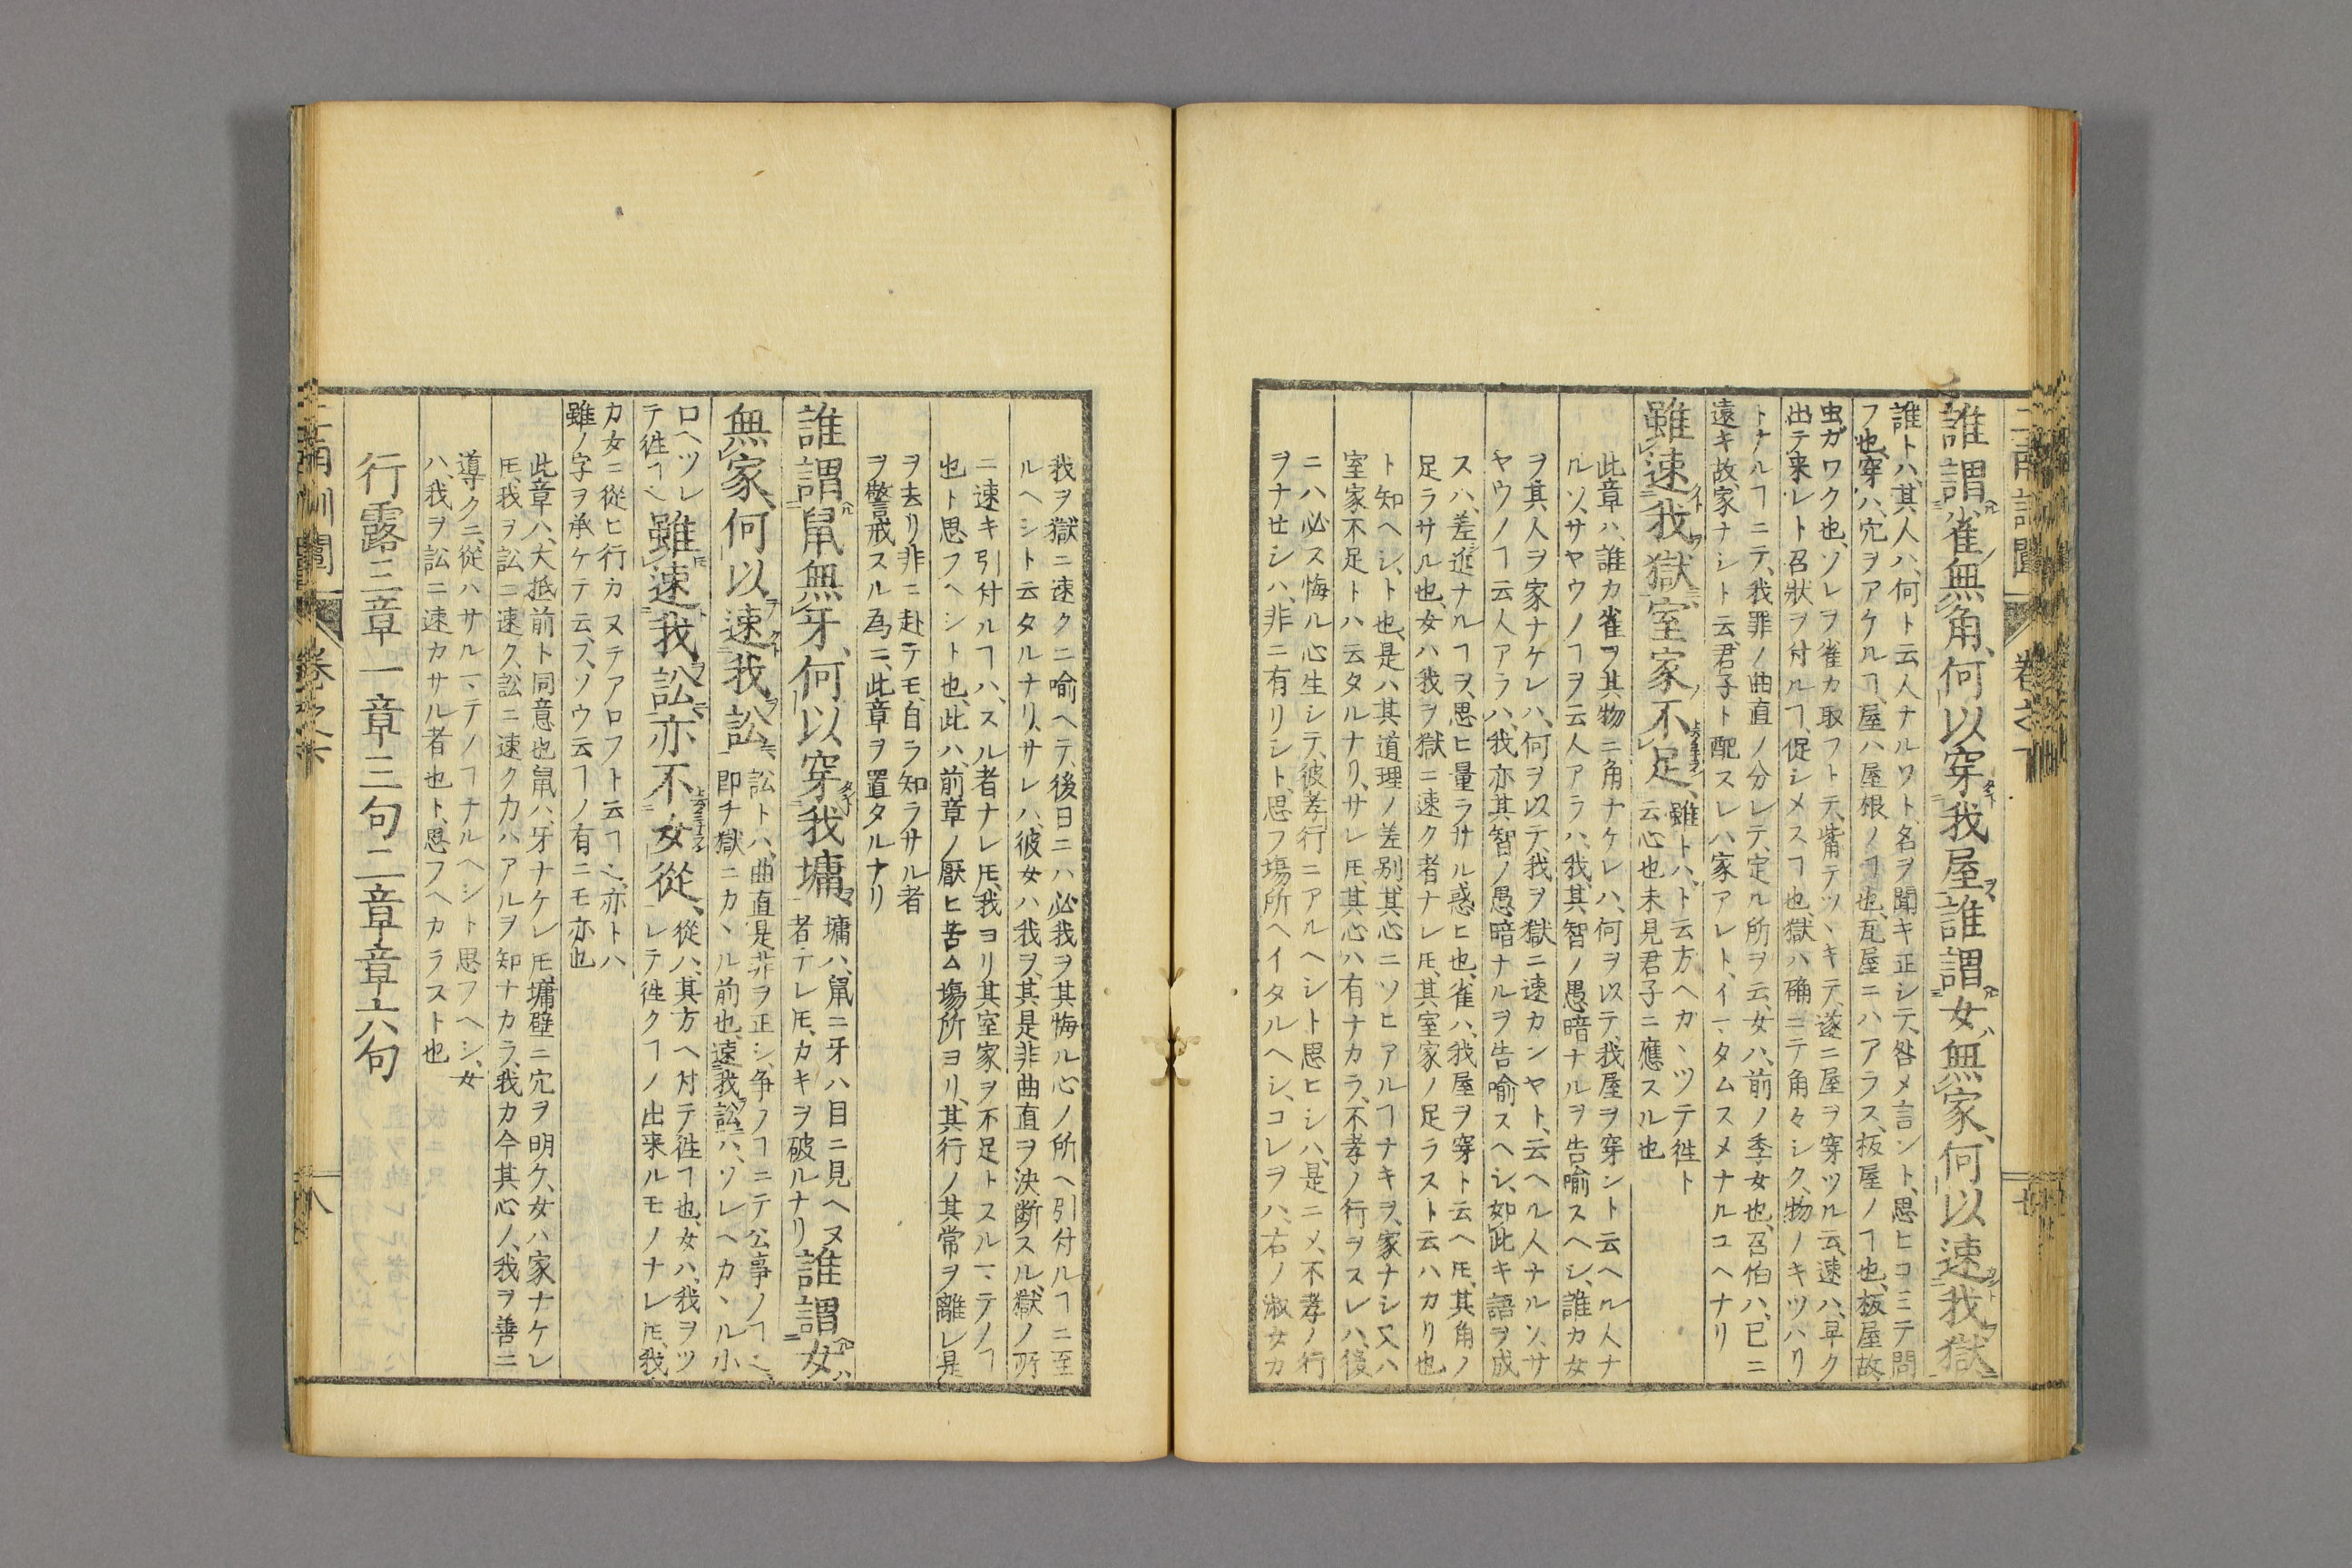 誰謂雀無角、何以穿我屋、誰謂女無家、何以速我獄
誰トハ、其人ハ、何ト云人ナルワト、名ヲ聞キ正シテ、咎メ言ント、思ヒコミテ問
フ也、穿ハ、穴ヲアケルヿ、屋ハ屋根ノヿ也、瓦屋ニハアラス、板屋ノヿ也、板屋故、
虫ガワク也、ソレヲ雀カ取フトテ、觜テツヽキテ、遂ニ屋ヲ穿ツル云、速ハ、早ク
出テ来レト召狀ヲ付ルヿ、促シメスヿ也、獄ハ确ニテ角々シク、物ノキツハリ
トナルヿニテ、我罪ノ曲直ノ分レテ、定ル所ヲ云、女ハ、前ノ季女也、召伯ハ、已ニ
遠キ故、家ナシト云、君子ト配スレハ、家アレト、イマタムスメナルユヘナリ
雖速我獄、室家不足、
雖トハ、ト云方ヘカヽツテ徃ト
云心也未見君子ニ應スル也
此章ハ、誰カ雀ヲ其物ニ角ナケレハ、何ヲ以テ、我屋ヲ穿ント云ヘル人ナ
ルソ、サヤウノヿヲ云人アラハ、我其智ノ愚暗ナルヲ告喻スヘシ、誰カ女
ヲ其人ヲ家ナケレハ、何ヲ以テ、我ヲ獄ニ速カンヤト、云ヘル人ナルソ、サ
ヤウノヿ云人アラハ、我亦其智ノ愚暗ナルヲ告喻スヘシ、如此キ語ヲ成
スハ、差進ナルヿヲ、思ヒ量ラサル惑ヒ也、雀ハ、我屋ヲ穿ト云ヘ𪜈、其角ノ
足ラサル也、女ハ我ヲ獄ニ速ク者ナレ𪜈、其室家ノ足ラスト云ハカリ也
ト知ヘシ、ト也、是ハ其道理ノ差別、其心ニソヒアルヿナキヲ、家ナシ又ハ
室家不足トハ云タルナリ、サレ𪜈、其心ハ有ナカラ、不孝ノ行ヲスレハ、後
ニハ必ス悔ル心生シテ、彼孝行ニアルヘシト思ヒシハ、是ニメ、不孝ノ行
ヲナセシハ、非ニ有リシト、思フ場所ヘイタルヘシ、コレヲハ、右ノ淑女カ
我ヲ獄ニ速クニ喻ヘテ、後日ニハ必我ヲ其悔ル心ノ所ヘ引付ルヿニ至
ルヘシト云タルナリ、サレハ、彼女ハ我ヲ、其是非曲直ヲ決断スル、獄ノ所
ニ速キ引付ルヿハ、スル者ナレ𪜈、我ヨリ其室家ヲ不足トスルマテノヿ
也ト思フヘシト也、此ハ、前章ノ厭ヒ苦ム場所ヨリ、其行ノ其常ヲ離レ是
ヲ去リ非ニ赴テモ、自ラ知ラサル者
ヲ警戒スル為ニ、此章ヲ置タルナリ
誰謂鼠無牙、何以穿我墉、
墉ハ、鼠ニ牙ハ目ニ見ヘヌ
者テレ𪜈、カキヲ破ルナリ
誰謂女
無家、何以速我訟、
訟トハ、曲直是非ヲ正シ、争ノヿニテ公事ノヿ也、
即チ獄ニカヽル前也、速我訟ハ、ソレヘカヽル小
口ヘツレ
テ徃ヿ也
雖速我訟、亦不女從、
從ハ、其方ヘ付テ徃ヿ也、女ハ、我ヲツ
レテ徃クヿノ出来ルモノナレ𪜈、我
カ女ニ從ヒ行カヌテアロフト云ヿ也、亦トハ
雖ノ字ヲ承ケテ云フ、ソウ云ヿノ有ニモ亦也
此章ハ、大抵前ト同意也鼠ハ、牙ナケレ𪜈、墉壁ニ穴ヲ明ク、女ハ家ナケレ
𪜈、我ヲ訟ニ速ク、訟ニ速ク力ハアルヲ知ナカラ、我カ今其心ノ、我ヲ善ニ
導クニ、從ハサルマテノヿナルヘシト思フヘシ、女
ハ、我ヲ訟ニ速カサル者也ト、思フヘカラスト也
行露三章一章三句二章章六句